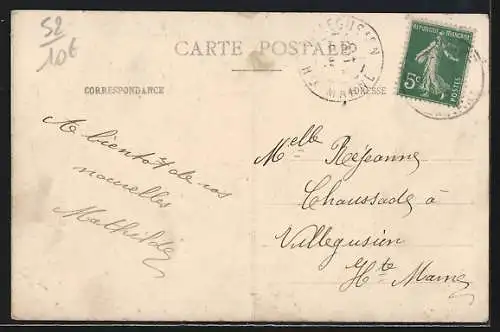 52
10€
CARTE POSTALE
VILLEGUSIEN
Hte MARNE
RÉPUBLIQUE FRANÇAISE
5c
CORRESPONDANCE
ADRESSE
A bientot de vos
nouvelles
Mathilde
Melle Réjeanne
Chaussade à
Villegusien
Hte Marne